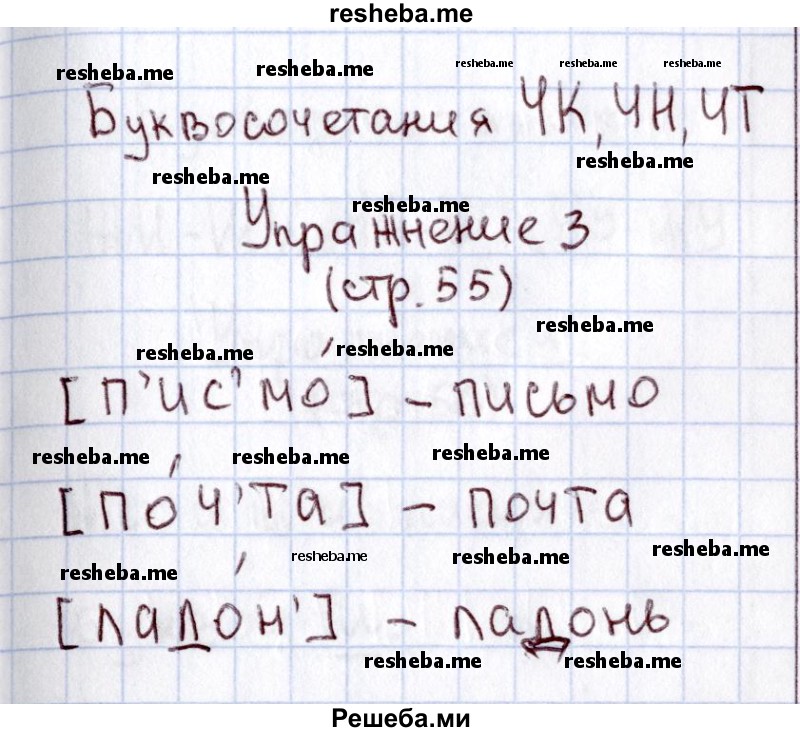 resheba.me
resheba.me resheba.me resheba.me resheba.me resheba.me
Буквосочетания ЧК, ЧН, ЧТ
resheba.me
resheba.me
resheba.me
Упражнение 3
(стр. 55)
resheba.me
resheba.me resheba.me
[п'ис'мо́] – письмо
resheba.me resheba.me resheba.me
[по́ч'та] – почта
resheba.me resheba.me resheba.me resheba.me
[ладо́н'] – ладонь
resheba.me resheba.me
Решеба.ми